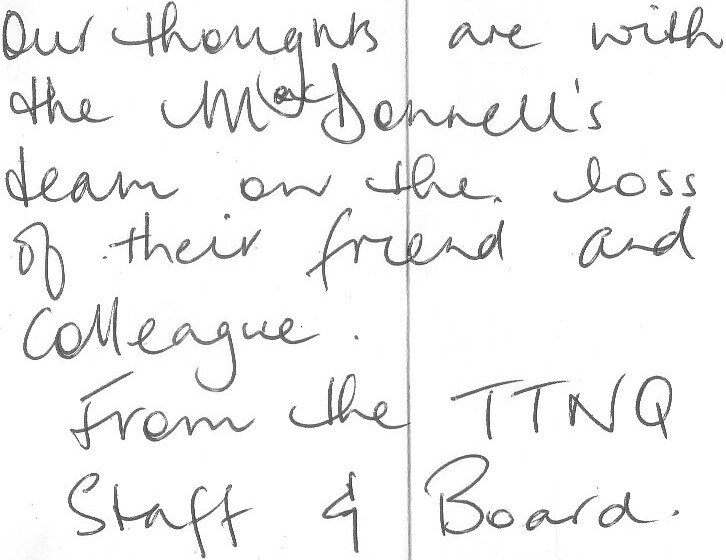 Our thoughts are with
the MacDonnell's
team on the loss
of their friend and
colleague.
From the TTNQ
Staff & Board.